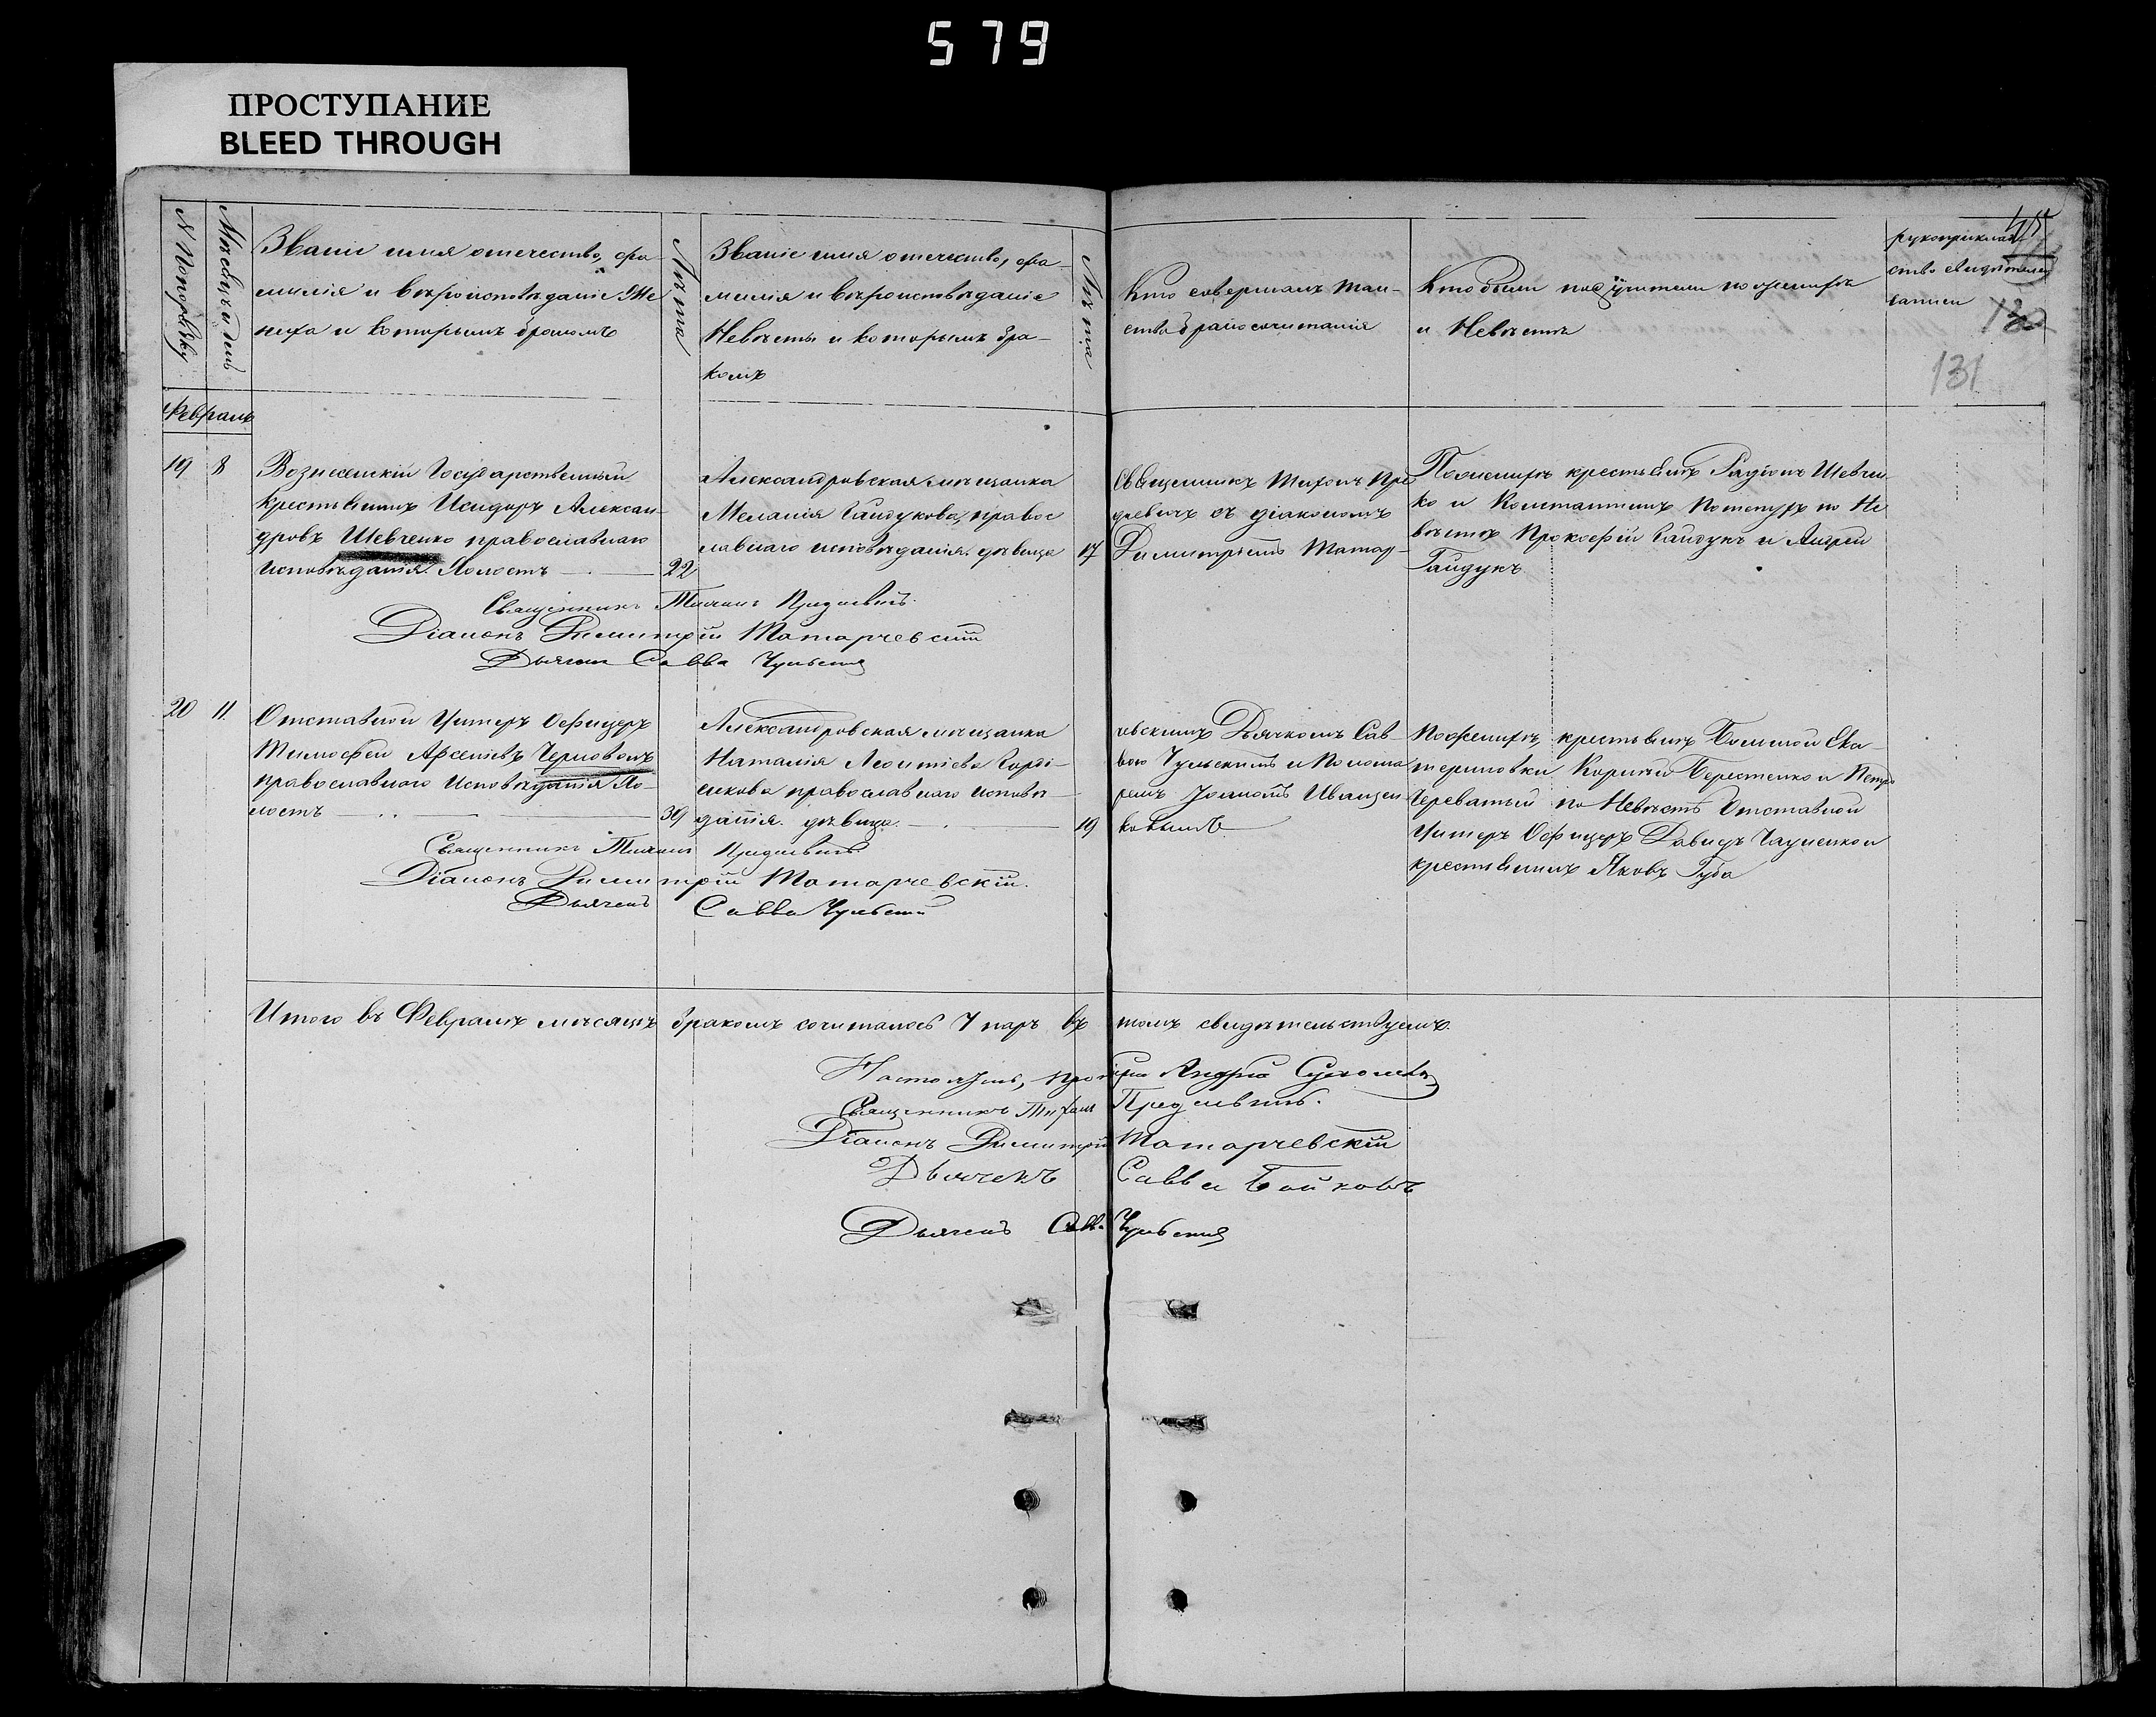 579
ПРОСТУПАНИЕ
BLEED THROUGH
№ По порядку
Мѣсяцъ и день
Званіе имя отечество, фа-
милія и вѣроисповѣданіе Же
ниха и которымъ бракомъ
Лѣта
Званіе имя отечество, фа-
милія и вѣроисповѣданіе
Невѣсты и которымъ бра-
комъ
Лѣта
Кто совершалъ таин-
ство бракосочитанія
Кто были поручители по женихѣ
и Невѣстѣ
рукоприклад
ство свидѣтелей
записи
130
131
Февраль
19 8
Вознесенскій Государственный
крестьянинъ Исидоръ Алексан-
дровъ Шевченко православнаго
исповѣданія. Холостъ 22
Александровская мѣщанка
Меланія Гайдукова, правос
лавнаго исповѣданія. дѣвица 17
Священникъ Тихонъ Пре
діакономъ
Димитріемъ Матар-
По женихѣ крестьяне Радіонъ Шевчен
ко и Константинъ по Не
вѣстѣ Прокофій Гайдукъ и Андрей
Гайдукъ
Священникъ Тихонъ
Діаконъ Димитрій Матарчевскій
Дьячекъ Савва
20 11.
Отставной Унтеръ Офицеръ
Тимофей Арсеніевъ Черноволъ
православнаго Исповѣданія Хо-
лостъ 39
Александровская мѣщанка
Наталія Леонтіева
православнаго исповѣ
данія. дѣвица. 19
чевскимъ Дьячкомъ Сав-
вою и Понома
ремъ Іоанномъ Иващен
ковымъ
По женихѣ, крестьяне Большой Ека-
териновки Корнѣй Берестенко и Петръ
Череватый по Невѣстѣ Отставной
Унтеръ Офицеръ Давидъ и
крестьянинъ Яковъ Губа
Священникъ Тихонъ
Діаконъ Димитрій Матарчевскій.
Дьячекъ Савва
Итого въ Февралѣ мѣсяцѣ бракомъ сочиталось 7 паръ въ томъ свидѣтельствуемъ.
Настоятель, Протоіерей Андрей
Священникъ Тихонъ
Діаконъ Димитрій Матарчевскій
Дьячекъ Савва Бойковъ
Дьячекъ Савва